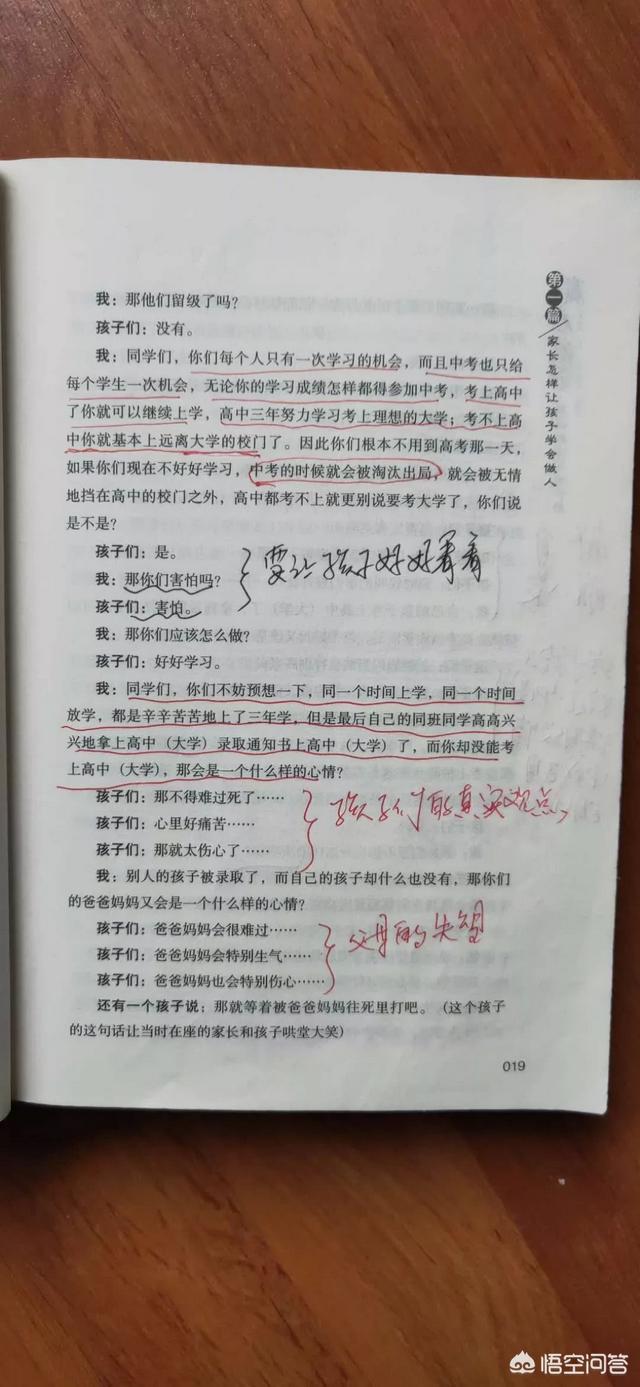 第一篇
家长怎样让孩子学会做人
我：那他们留级了吗？
孩子们：没有。
我：同学们，你们每个人只有一次学习的机会，而且中考也只给
每个学生一次机会，无论你的学习成绩怎样都得参加中考，考上高中
了你就可以继续上学，高中三年努力学习考上理想的大学；考不上高
中你就基本上远离大学的校门了。因此你们根本不用到高考那一天，
如果你们现在不好好学习，中考的时候就会被淘汰出局，就会被无情
地挡在高中的校门之外，高中都考不上就更别说要考大学了，你们说
是不是？
孩子们：是。
我：那你们害怕吗？
要让孩子好好看看
孩子们：害怕。
我：那你们应该怎么做？
孩子们：好好学习。
我：同学们，你们不妨预想一下，同一个时间上学，同一个时间
放学，都是辛辛苦苦地上了三年学，但是最后自己的同班同学高高兴
兴地拿上高中（大学）录取通知书上高中（大学）了，而你却没能考
上高中（大学），那会是一个什么样的心情？
孩子们：那不得难过死了……
孩子们：心里好痛苦……
孩子们的真实观点
孩子们：那就太伤心了……
我：别人的孩子被录取了，而自己的孩子却什么也没有，那你们
的爸爸妈妈又会是一个什么样的心情？
孩子们：爸爸妈妈会很难过……
孩子们：爸爸妈妈会特别生气……
父母的失望
孩子们：爸爸妈妈也会特别伤心……
还有一个孩子说：那就等着被爸爸妈妈往死里打吧。（这个孩子
的这句话让当时在座的家长和孩子哄堂大笑）
019
悟空问答